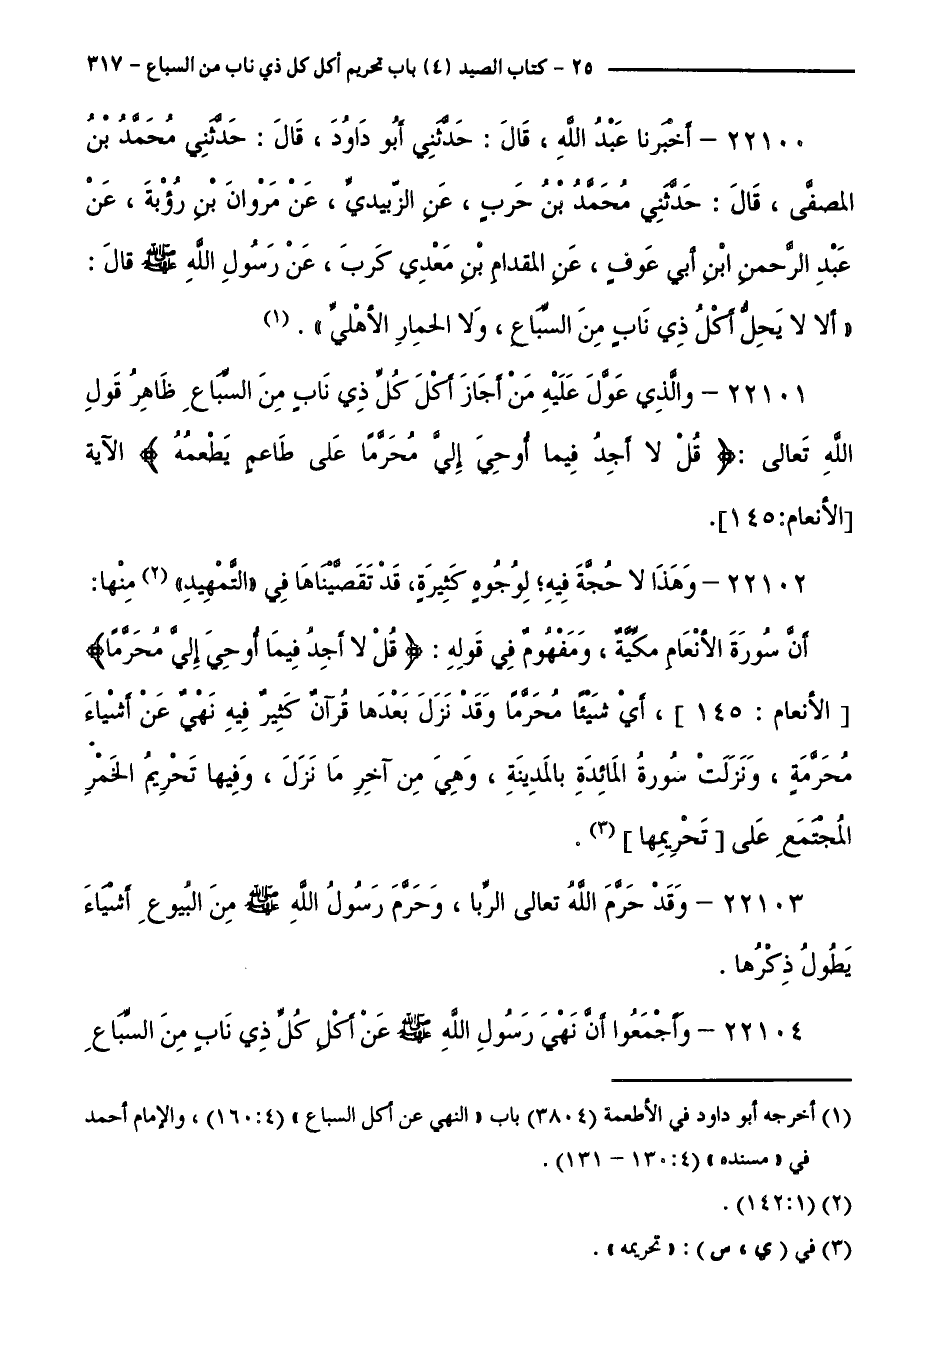 ٢٥ - كتاب الصيد (٤) باب تحريم أكل كل ذي ناب من السباع - ٣١٧
٢٢١٠٠ – أَخْبَرنا عَبْدُ اللَّهِ ، قَالَ : حَدَّثَنِي أَبُو دَاوُدَ ، قَالَ : حَدَّثَنِي مُحَمَّدُ بْنُ
المصفَّى ، قَالَ : حَدَّثَنِي مُحَمَّدُ بْنُ حَربٍ ، عَنِ الزّبيديِّ ، عَنْ مَرْوانَ بْنِ رُؤْبةَ ، عَنْ
عَبْدِ الرَّحمنِ ابْنِ أبي عَوفٍ ، عَنِ المقدامِ بْنِ مَعْدِي كَرِبَ ، عَنْ رَسُولِ اللَّهِ ﷺ قالَ :
« ألا لا يَحِلُّ أَكْلُ ذِي نَابٍ مِنَ السِّبَاعِ ، وَلا الحمارِ الأهْليِّ » . (١)
٢٢١٠١ – والَّذِي عَوَّلَ عَلَيْهِ مَنْ أَجَازَ أَكْلَ كُلِّ ذِي نَابٍ مِنَ السِّبَاعِ ظَاهِرُ قَولِ
اللَّهِ تَعالى :﴿ قُلْ لا أجِدُ فِيما أُوحِيَ إِليَّ مُحَرَّمًا عَلى طَاعِمٍ يَطْعمُهُ ﴾ الآية
[الأنعام:١٤٥].
٢٢١٠٢ – وَهَذَا لا حُجَّةَ فِيهِ؛ لِوُجُوهٍ كَثِيرَةٍ، قَدْ تَقَصَّيْنَاهَا فِي «التَّمْهِيدِ» (٢) مِنْها:
أَنَّ سُورَةَ الأنْعَامِ مكيَّةٌ ، وَمَفْهُومٌ فِي قَولِهِ : ﴿ قُلْ لا أجِدُ فِيمَا أُوحِيَ إِليَّ مُحَرَّمًا﴾
[ الأنعام : ١٤٥ ] ، أَيْ شَيْئًا مُحَرَّمًا وَقَدْ نَزَلَ بَعْدَها قُرآنٌ كَثِيرٌ فِيهِ نَهْيٌ عَنْ أَشْيَاءَ
مُحَرَّمَةٍ ، وَنَزَلَتْ سُورةُ المَائِدَةِ بالمَدِينَةِ ، وَهِيَ مِن آخِرِ مَا نَزَلَ ، وَفِيها تَحْرِيمُ الخَمْرِ
المُجْتَمَعِ عَلى [ تَحْرِيمِها ] (٣) .
٢٢١٠٣ – وَقَدْ حَرَّمَ اللَّهُ تعالى الرِّبا ، وَحَرَّمَ رَسُولُ اللَّهِ ﷺ مِنَ البُيوعِ أشْيَاءَ
يَطُولُ ذِكْرُها .
٢٢١٠٤ – وَأَجْمَعُوا أَنَّ نَهْيَ رَسُولِ اللَّهِ ﷺ عَنْ أَكْلِ كُلِّ ذِي نَابٍ مِنَ السِّبَاعِ
(١) أخرجه أبو داود في الأطعمة (٣٨٠٤) باب « النهي عن أكل السباع » (٤:١٦٠) ، والإمام أحمد
في « مسنده » (٤:١٣٠ – ١٣١) .
(٢) (١:١٤٢) .
(٣) في ( ي ، س ) : « تحريمه » .